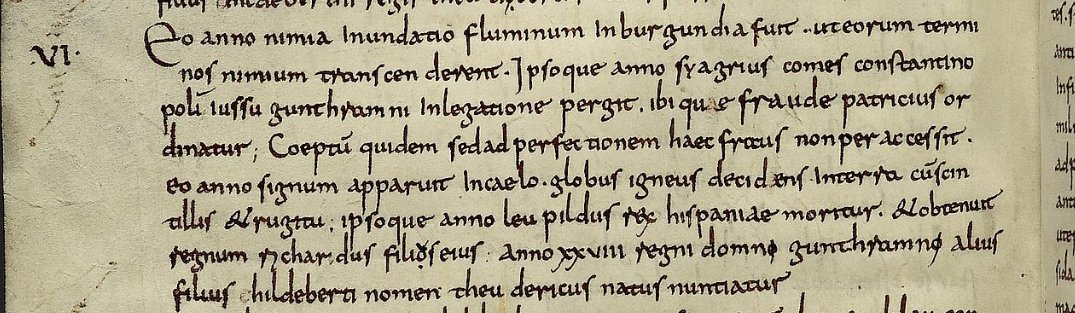 VI.
Eo anno nimia Inundatio fluminum Inburgundia fuit. uteorum termi
nos nimium transcenderent. Ipsoque anno syagrius comes constantino
polū iussu gunthramni Inlegatione pergit. ibique fraude patricius or
dinatur; Coeptū quidem sedad perfectionem haec fraus nonperaccessit.
eo anno signum apparuit Incaelo. globus igneus decidens Interra cū scin
tillis & rugitu; ipsoque anno leupildus rex hispaniae moritur. & obtenuit
regnum richardus filius eius. Anno xxviii regni domno gunthramno alius
filius hildeberti nomen theudericus natus nuntiatur